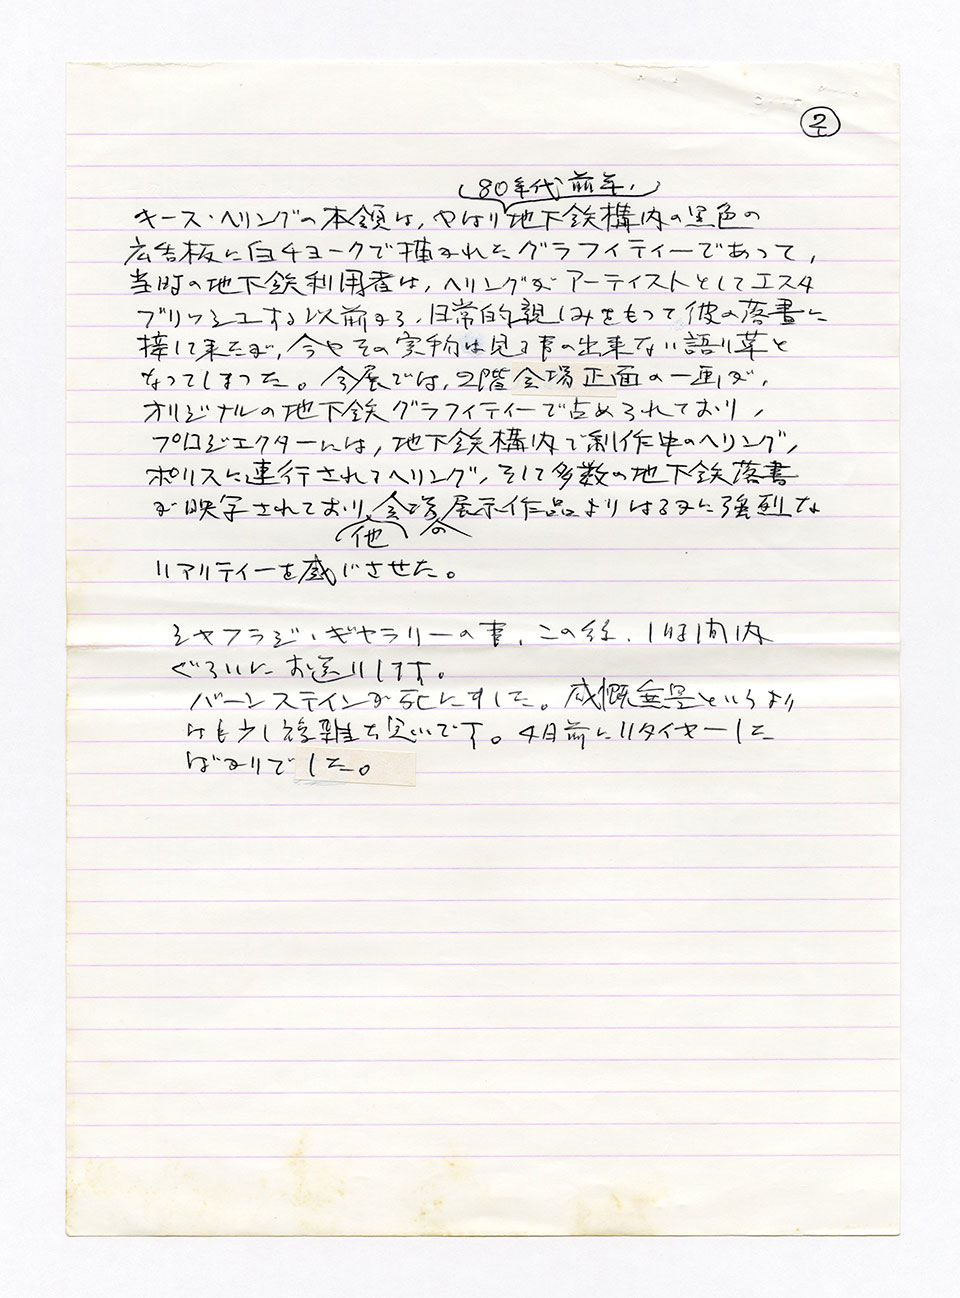 2
80年代前半、
キース・ヘリングの本領は、やはり地下鉄構内の黒色の
広告板に白チョークで描かれたグラフィティーであって、
当時の地下鉄利用者は、ヘリングがアーティストとしてエスタ
ブリッシュする以前から、日常的親しみをもって彼の落書に
接して来たが、今やその実物は見る事の出来ない語り草と
なってしまった。今展では、2階会場正面の一画が、
オリジナルの地下鉄グラフィティーで占められており、
プロジェクターには、地下鉄構内で制作中のヘリング、
ポリスに連行されるヘリング、そして多数の地下鉄落書
が映写されており、会場展示作品よりはるかに強烈な
他 の
リアリティーを感じさせた。
シャフラジ・ギャラリーの事、この後、1時間内
ぐらいにお送りします。
バーンスタインが死にました。感慨無量というより
はも少し複雑な思いです。4日前にリタイヤーした
ばかりでした。